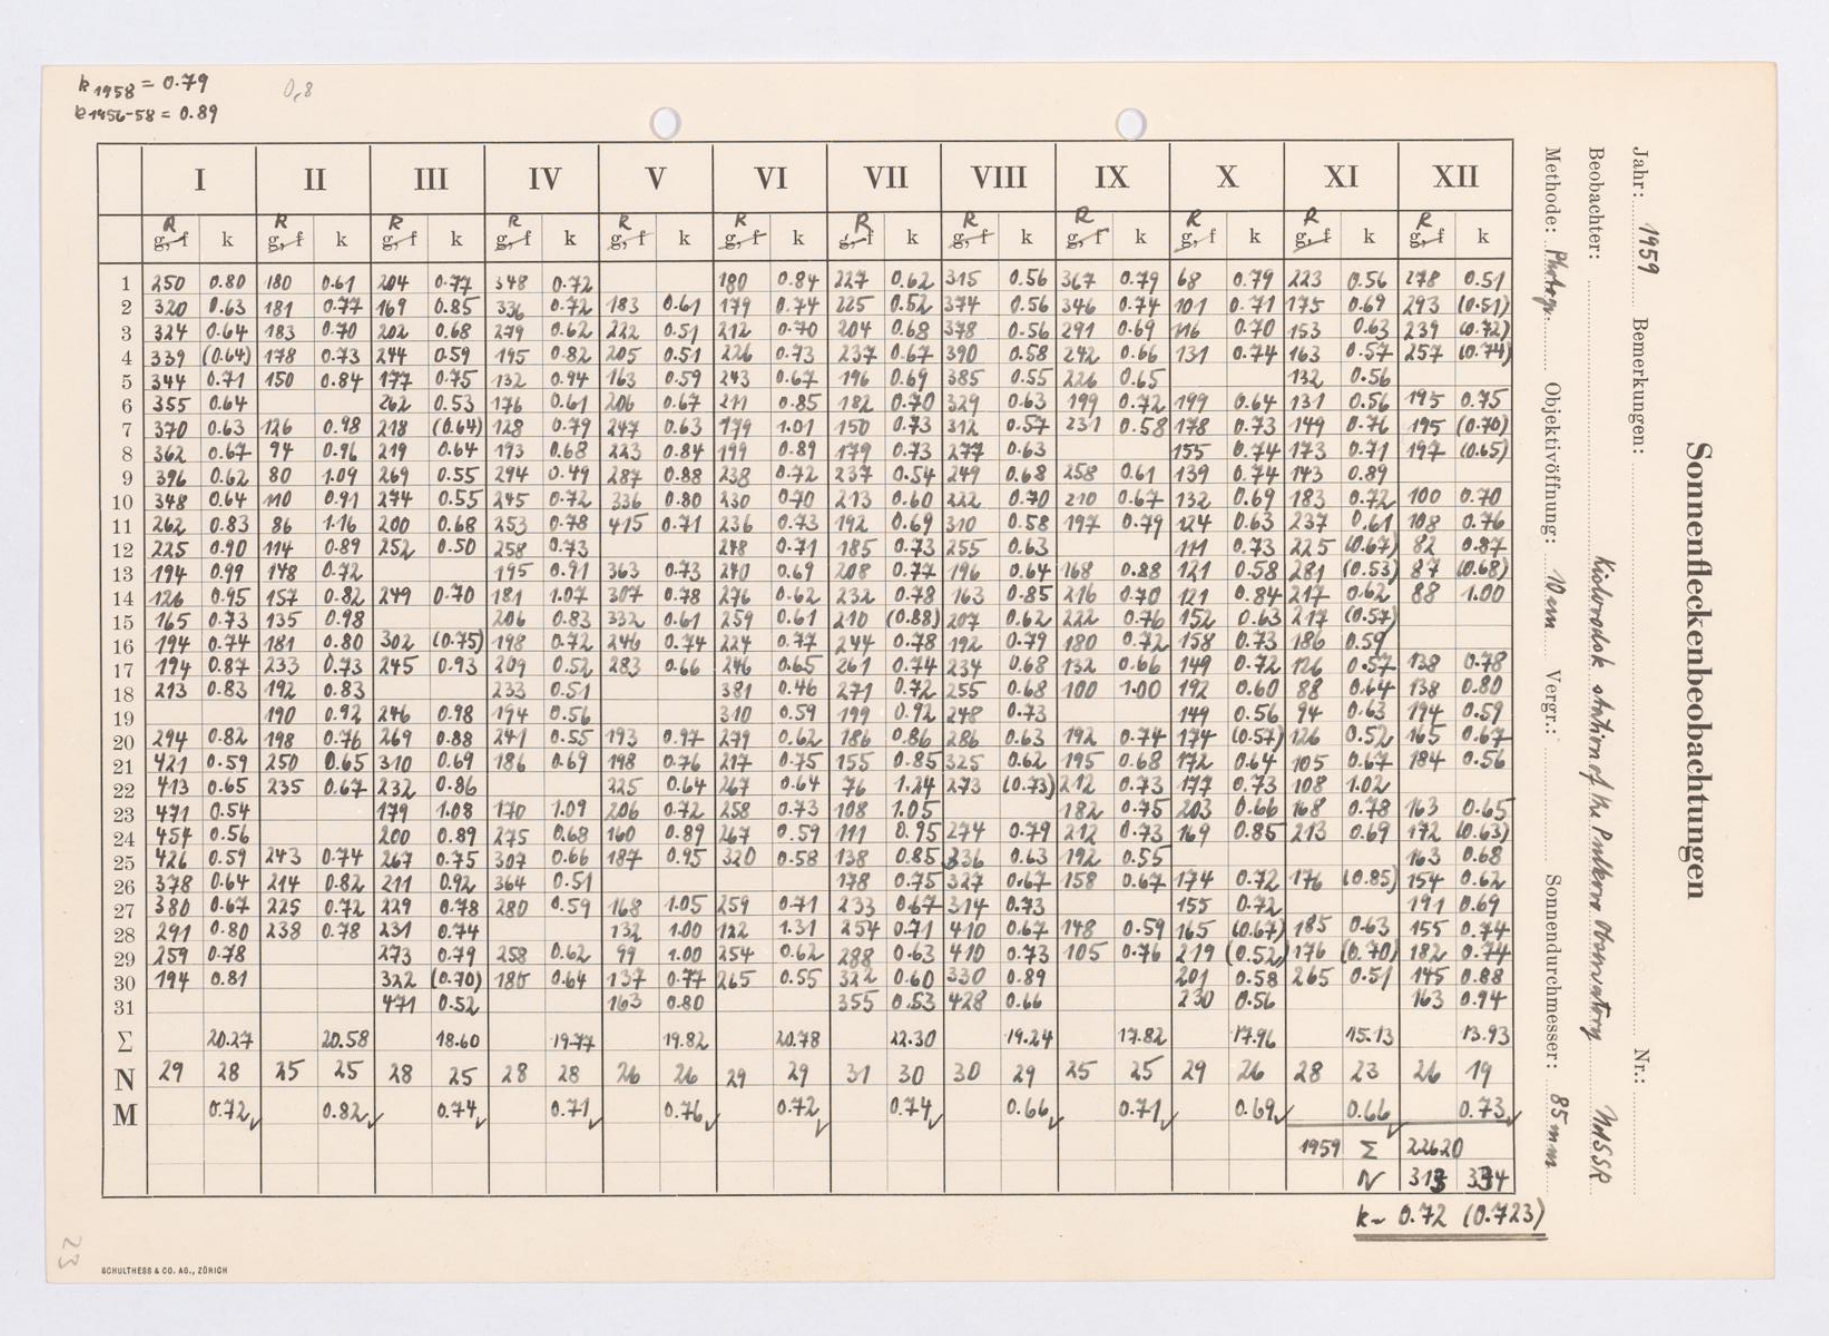 k 1958 = 0.79
k 1956-58 = 0.89
0,8
Sonnenfleckenbeobachtungen
Jahr: 1959 Bemerkungen: Nr.:
Beobachter: Kislovodsk station of the Pulkovo Observatory UdSSR
Methode: Photogr. Objektivöffnung: 10 cm Vergr.: Sonnendurchmesser: 85 mm
I II III IV V VI VII VIII IX X XI XII
R R R R R R R R R R R R
g, f k g, f k g, f k g, f k g, f k g, f k g, f k g, f k g, f k g, f k g, f k g, f k
1 250 0.80 180 0.61 204 0.77 348 0.72 180 0.84 227 0.62 315 0.56 367 0.79 68 0.79 223 0.56 278 0.51
2 320 0.63 181 0.77 169 0.85 336 0.72 183 0.61 179 0.74 225 0.52 374 0.56 346 0.74 101 0.71 175 0.69 293 (0.51)
3 324 0.64 183 0.70 202 0.68 279 0.62 222 0.51 212 0.70 204 0.68 378 0.56 291 0.69 116 0.70 153 0.63 239 (0.72)
4 339 (0.64) 178 0.73 244 0.59 195 0.82 205 0.51 226 0.73 237 0.67 390 0.58 242 0.66 131 0.74 163 0.57 257 (0.74)
5 344 0.71 150 0.84 177 0.75 132 0.94 163 0.59 243 0.67 196 0.69 385 0.55 226 0.65 132 0.56
6 355 0.64 262 0.53 176 0.61 206 0.67 211 0.85 182 0.70 329 0.63 199 0.72 199 0.64 131 0.56 195 0.75
7 370 0.63 126 0.98 218 (0.64) 128 0.79 247 0.63 179 1.01 150 0.73 312 0.57 231 0.58 178 0.73 149 0.76 195 (0.70)
8 362 0.67 94 0.96 219 0.64 193 0.68 223 0.84 199 0.89 179 0.73 277 0.63 155 0.74 173 0.71 197 (0.65)
9 396 0.62 80 1.09 269 0.55 294 0.49 287 0.88 238 0.72 237 0.54 249 0.68 258 0.61 139 0.74 143 0.89
10 348 0.64 110 0.91 274 0.55 245 0.72 336 0.80 230 0.70 213 0.60 222 0.70 210 0.67 132 0.69 183 0.72 100 0.70
11 262 0.83 86 1.16 200 0.68 253 0.78 415 0.71 236 0.73 192 0.69 310 0.58 197 0.79 124 0.63 237 0.61 108 0.76
12 225 0.90 114 0.89 252 0.50 258 0.73 248 0.71 185 0.73 255 0.63 111 0.73 225 (0.67) 82 0.87
13 194 0.99 148 0.72 195 0.91 363 0.73 240 0.69 208 0.77 196 0.64 168 0.88 121 0.58 281 (0.53) 87 (0.68)
14 126 0.95 157 0.82 249 0.70 181 1.07 307 0.78 276 0.62 232 0.78 163 0.85 216 0.70 121 0.84 217 0.62 88 1.00
15 165 0.73 135 0.98 206 0.83 332 0.61 259 0.61 210 (0.88) 207 0.62 222 0.76 152 0.63 217 (0.57)
16 194 0.74 181 0.80 302 (0.75) 198 0.72 246 0.74 224 0.77 244 0.78 192 0.79 180 0.72 158 0.73 186 0.59
17 194 0.87 233 0.73 245 0.93 209 0.52 283 0.66 246 0.65 261 0.74 234 0.68 132 0.66 149 0.72 126 0.57 138 0.78
18 213 0.83 192 0.83 233 0.51 381 0.46 271 0.72 255 0.68 100 1.00 192 0.60 88 0.64 138 0.80
19 190 0.92 246 0.98 194 0.56 310 0.59 199 0.92 248 0.73 149 0.56 94 0.63 194 0.59
20 294 0.82 198 0.76 269 0.88 241 0.55 193 0.97 279 0.62 186 0.86 286 0.63 192 0.74 174 (0.57) 126 0.52 165 0.67
21 421 0.59 250 0.65 310 0.69 186 0.69 198 0.76 217 0.75 155 0.85 325 0.62 195 0.68 172 0.64 105 0.67 184 0.56
22 413 0.65 235 0.67 232 0.86 225 0.64 267 0.64 76 1.24 273 (0.73) 212 0.73 177 0.73 108 1.02
23 471 0.54 179 1.08 170 1.09 206 0.72 258 0.73 108 1.05 182 0.75 203 0.66 168 0.78 163 0.65
24 454 0.56 200 0.89 275 0.68 160 0.89 267 0.59 111 0.95 274 0.79 212 0.73 169 0.85 213 0.69 172 (0.63)
25 426 0.59 243 0.74 267 0.75 307 0.66 187 0.95 320 0.58 138 0.85 336 0.63 192 0.55 163 0.68
26 378 0.64 214 0.82 211 0.92 364 0.51 178 0.75 327 0.67 158 0.67 174 0.72 176 (0.85) 154 0.62
27 380 0.67 225 0.72 229 0.78 280 0.59 168 1.05 259 0.71 233 0.67 314 0.73 155 0.72 191 0.69
28 291 0.80 238 0.78 231 0.74 132 1.00 122 1.31 254 0.71 410 0.67 148 0.59 165 (0.67) 185 0.63 155 0.74
29 259 0.78 273 0.79 258 0.62 99 1.00 254 0.62 288 0.63 410 0.73 105 0.76 219 (0.52) 176 (0.70) 182 0.74
30 194 0.81 322 (0.70) 185 0.64 137 0.77 265 0.55 322 0.60 330 0.89 201 0.58 265 0.51 145 0.88
31 471 0.52 163 0.80 355 0.53 428 0.66 230 0.56 163 0.94
Σ 20.27 20.58 18.60 19.77 19.82 20.78 22.30 19.24 17.82 17.96 15.13 13.93
N 29 28 25 25 28 25 28 28 26 26 29 29 31 30 30 29 25 25 29 26 28 23 26 19
M 0.72 0.82 0.74 0.71 0.76 0.72 0.74 0.66 0.71 0.69 0.66 0.73
1959 Σ 22620
N 313 334
k = 0.72 (0.723)
23
SCHULTHESS & CO. AG., ZÜRICH